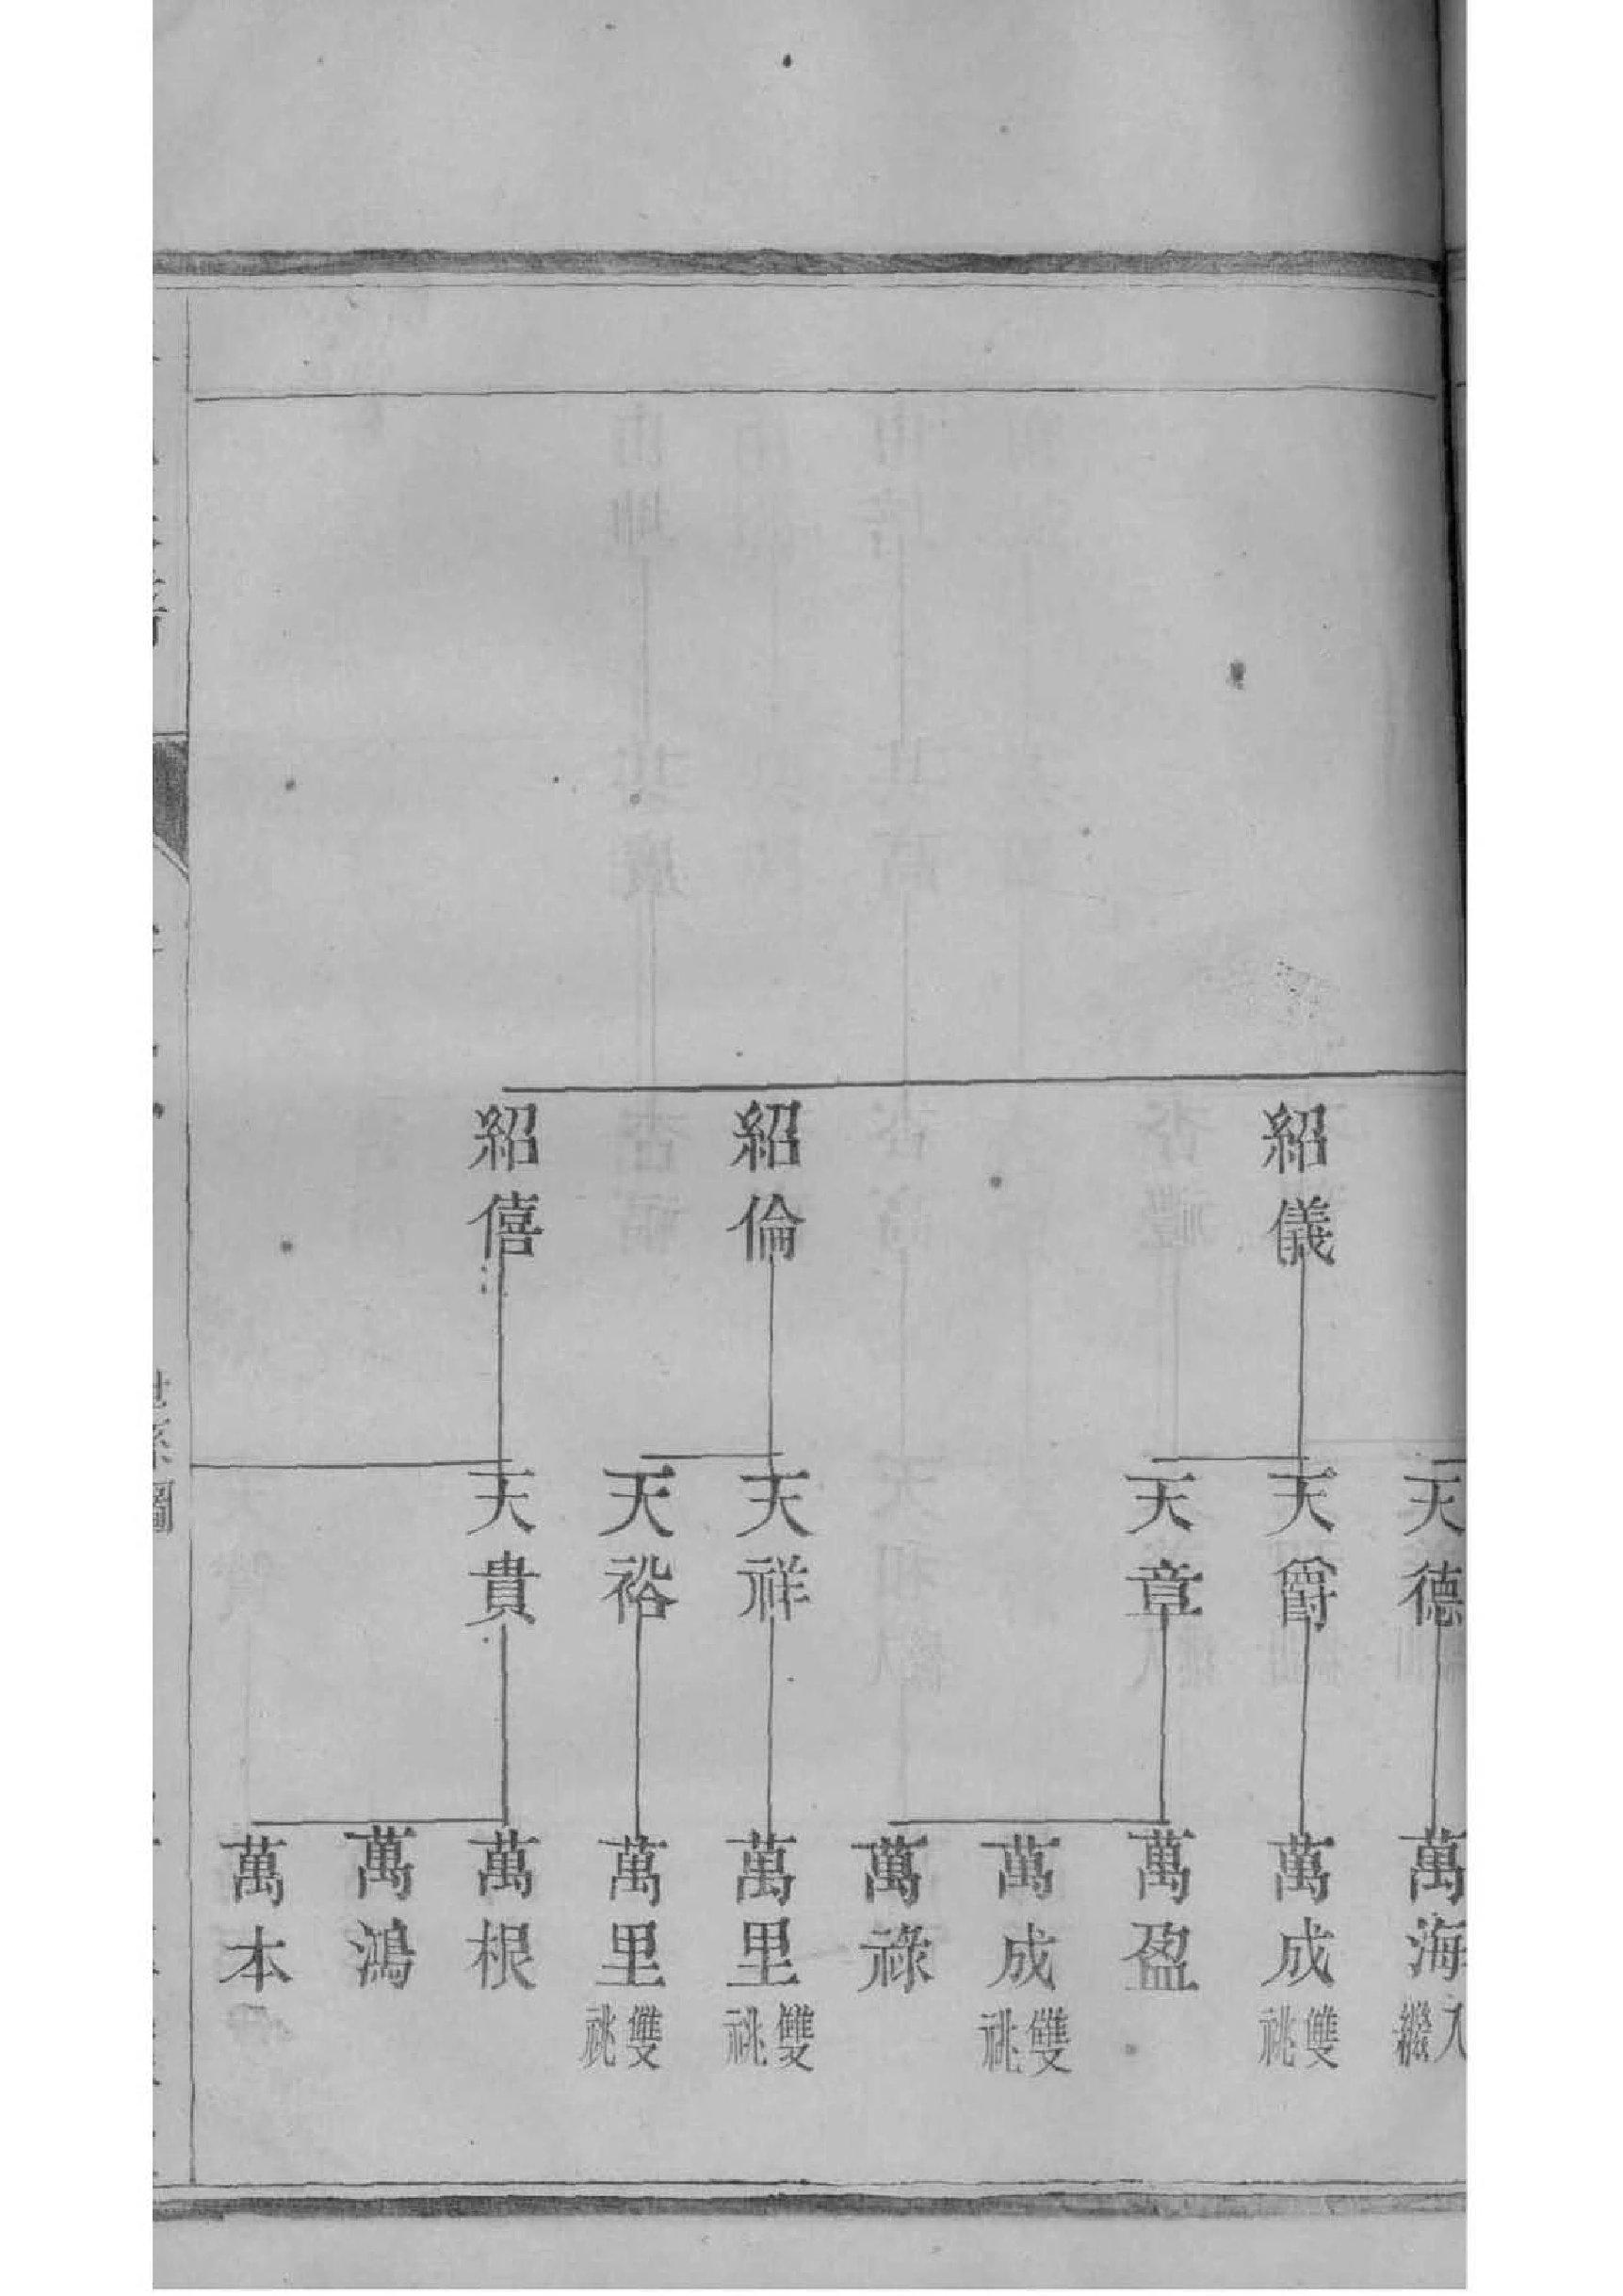 紹儀
紹倫
紹僖
天德
天爵
天章
天祥
天裕
天貴
萬海 入繼
萬成 雙祧
萬盈
萬成 雙祧
萬祿
萬里 雙祧
萬里 雙祧
萬根
萬鴻
萬本
世系圖